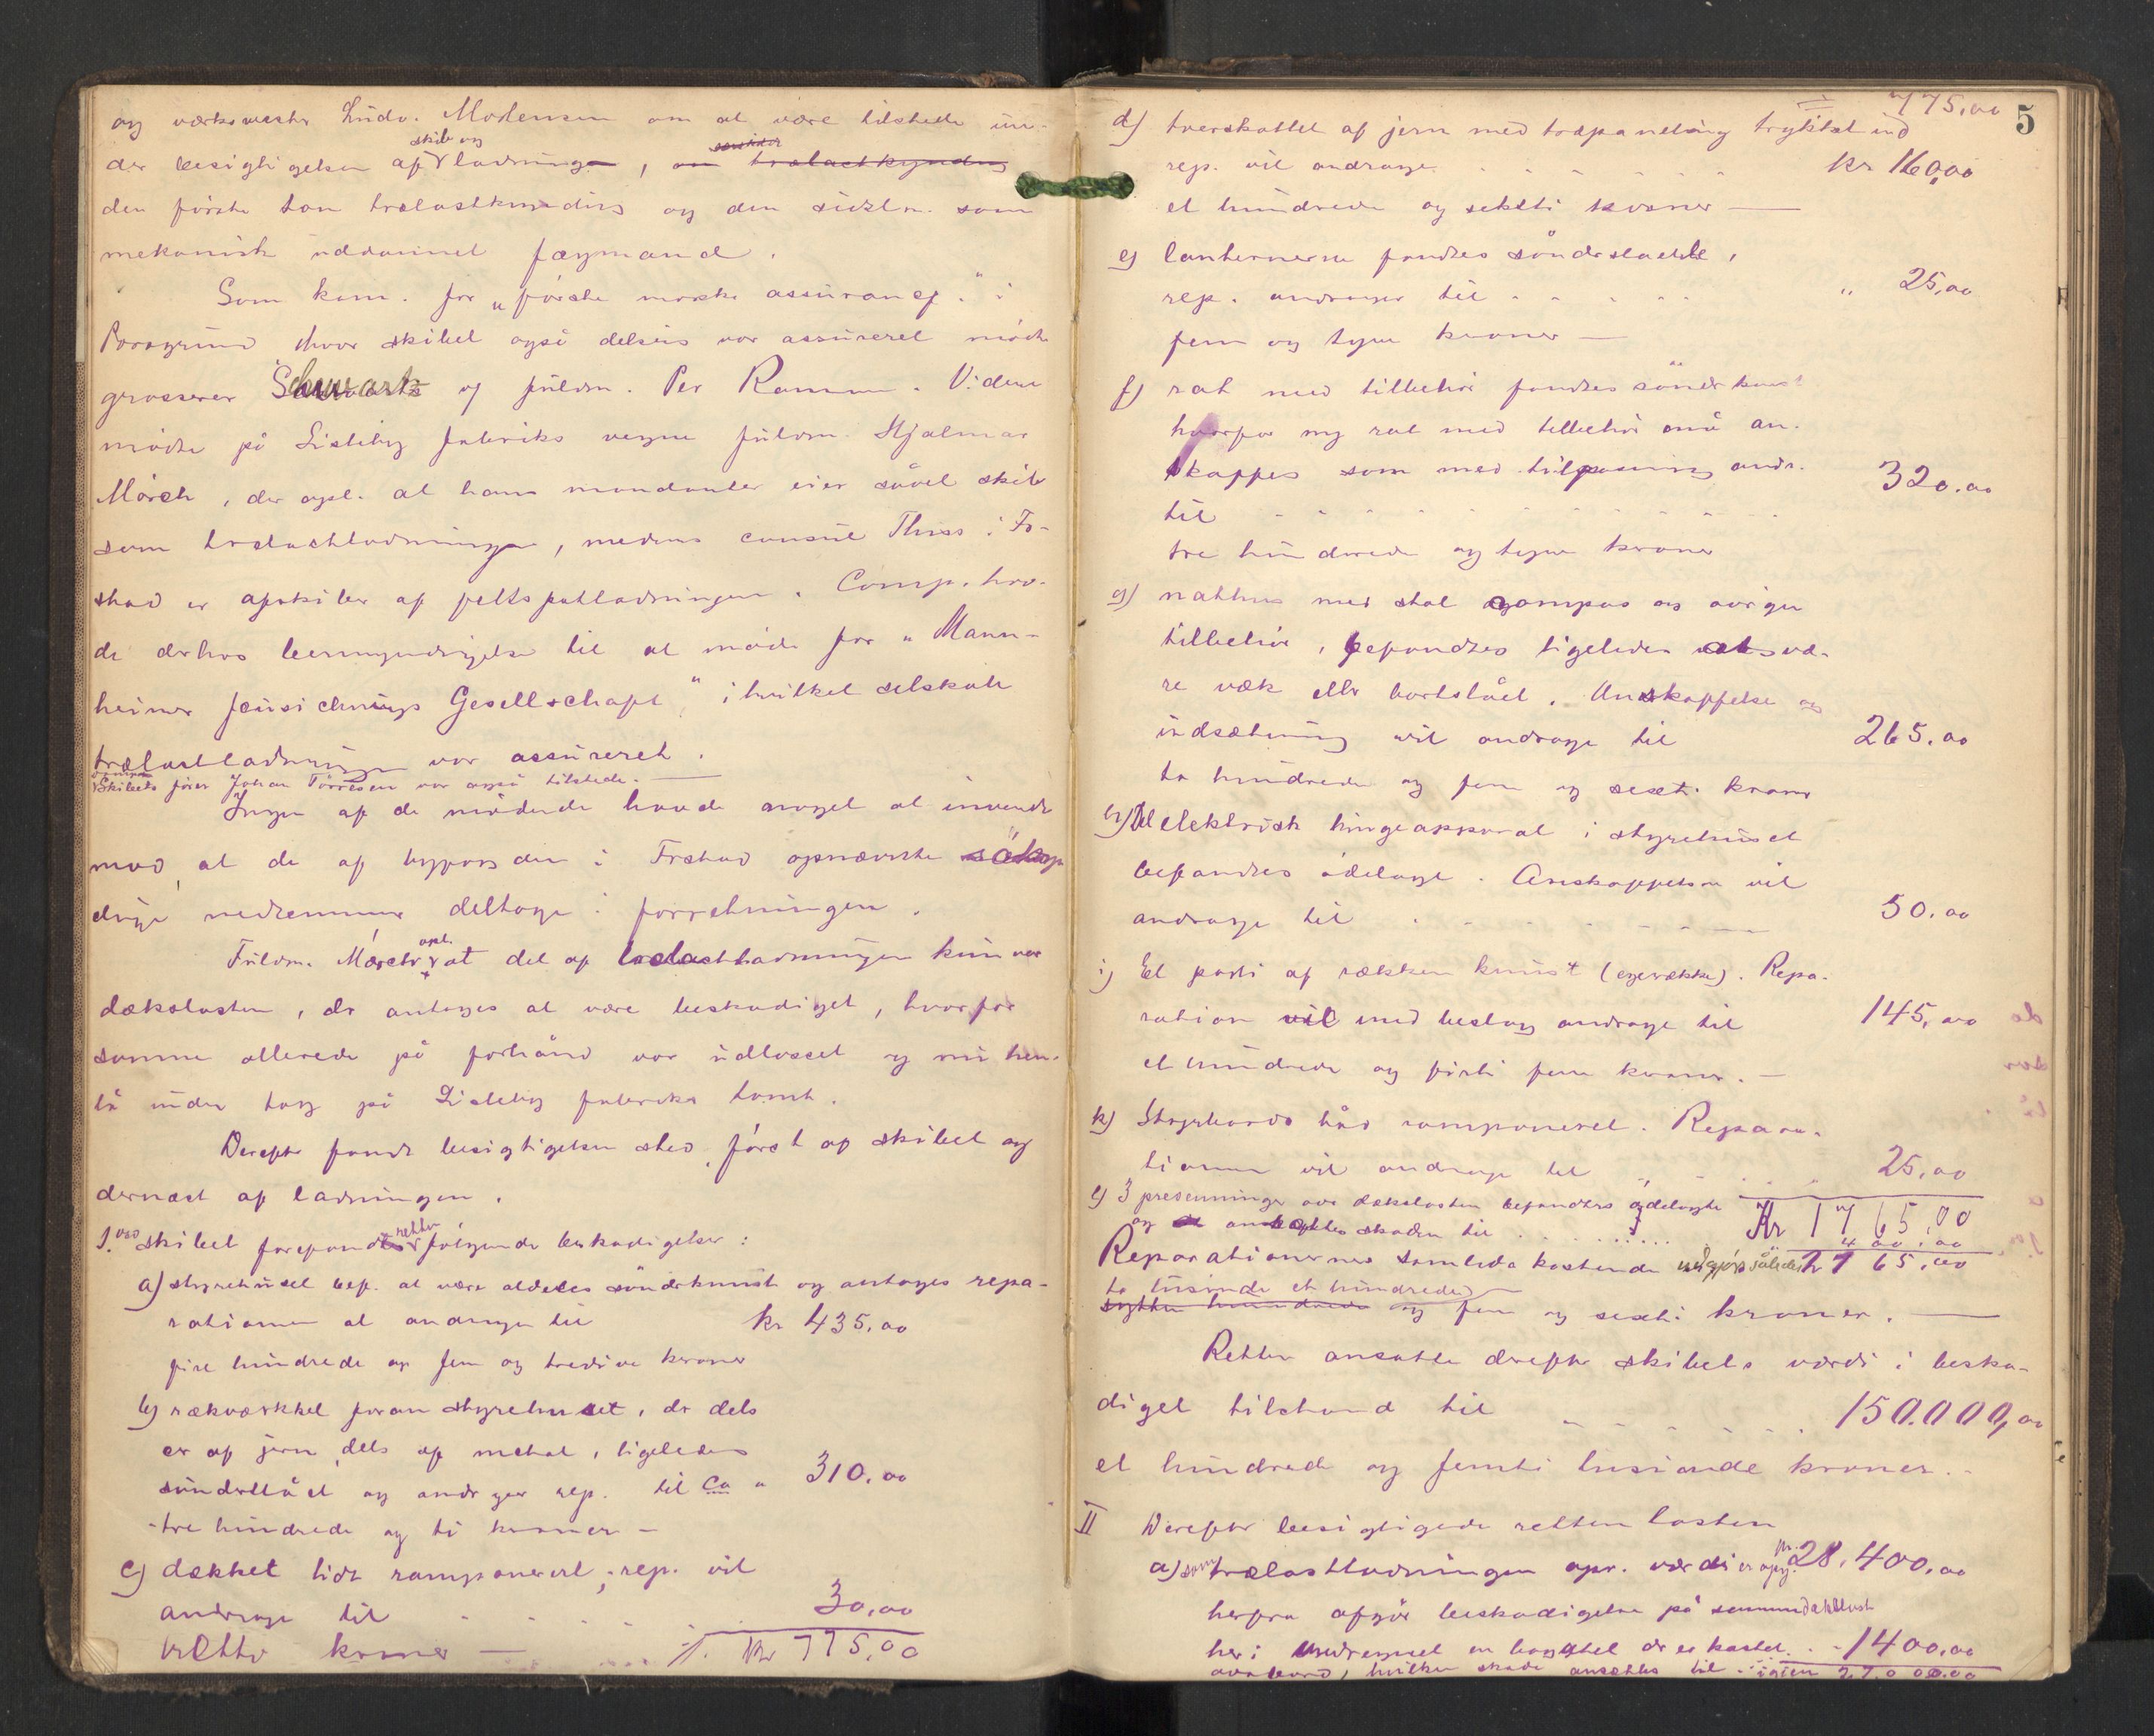 og værksmester Ludv. Mortensen om at være tilstede un-
der besigtigelsen af skib og ladninger, om trælastkyndig
den første som trælastkyndig og den sidstn. som
mekanisk uddannet fagmand.
Som kom. for „første norske assurancef." i
Porsgrund hvor skibet også delvis var assureret mødte
grosserer Schwartz og fuldm. Per Ramm. Videre
mødte på Lisleby fabriks vegne fuldm. Hjalmar
Mörch, der opl. at hans mandanter eier såvel skib
som trælastladningen, medens consul Thiis i Fr-
stad er afskiber af feltspatladningen. Comp. hav-
de derhos bemyndigelse til at møde for „Mann-
heimer Gesellschaft" i hvilket selskab
trælastladningen var assureret.
Skibets fører Johan Törresen var også tilstede.
Ingen af de mødende havde noget at invende
mod, at de af byfogden i Frstad opnævnte søkyn
dige medlemmer deltage i forretningen.
Fuldm. Mørch opl. at det af trælastladningen kun var
dækslasten, der antages at være beskadiget, hvorfor
samme allerede på forhånd var udlosset og nu hen-
lå under tag på Lisleby fabriks tomt.
Derefter fandt besigtigelsen sted, först af skibet og
dernæst af ladningen.
I. ved skibet forefandt retten følgende beskadigelser:
a) styrehuset bef. at være aldeles sönderknust og antages repa-
rationen at andrage til kr 435,00
fire hundrede og fem og tredive kroner
b) rækværkket foran styrehuset, der dels
er af jern, dels af metal, ligeledes
sønderslået og andrager rep. til ca " 310,00
- tre hundrede og ti kroner -
c) dækket lidt ramponeret; rep. vil
andrage til 30,00
tretti kroner — Kr 775,00
5
775,00
d) tverskottet af jern med træpaneling trykket ind
rep. vil andrage kr 160,00
et hundrede og seksti kroner —
e) lanternerne fandtes sönderslaatte,
rep. andrager til " 25,00
fem og tyve kroner —
f) rat med tilbehör fandtes sönderknust
hvorfor ny rat med tilbehör må an-
skaffes som med tilpasning andr.
til 320,00
tre hundrede og tyve kroner
g) nathus med stol compas og övrige
tilbehör, befandtes ligeledes at væ-
re væk eller bortslået. Anskaffelse og
indsætning vil andrage til 265,00
to hundrede og fem og sexti kroner
h) Det elektrisk ringeapparat i styrehuset
befandtes ödelagt. Anskaffelsen vil
andrage til 50,00
i) Et parti af rækken knust (egerække). Repa-
ration vil med beslag andrage til 145,00
et hundrede og firti fem kroner. —
k) Styrbords båd ramponeret. Repara-
tionen vil andrage til 25,00
l) 3 presenninger over dækslasten befandtes ödelagte Kr 1765,00
og ansættes skaden til 400,00
Reparationernes samlede kostende udgjör således 2165,00
to tusinde et hundrede
sytten hundrede og fem og sexti kroner. —
Retten ansatte derefter skibets værdi i beska-
diget tilstand til 150.000,00
et hundrede og femti tusiande kroner. -
II Derefter besigtigede retten lasten
a) som trælastladningen opr. værdi er opg. kr. 28.400,00
herfra afgår beskadigelse på samme dækslast
heri medregnet en del der er kastet 1400,00
overbord, hvilken skade ansættes til igjen 27.000,00